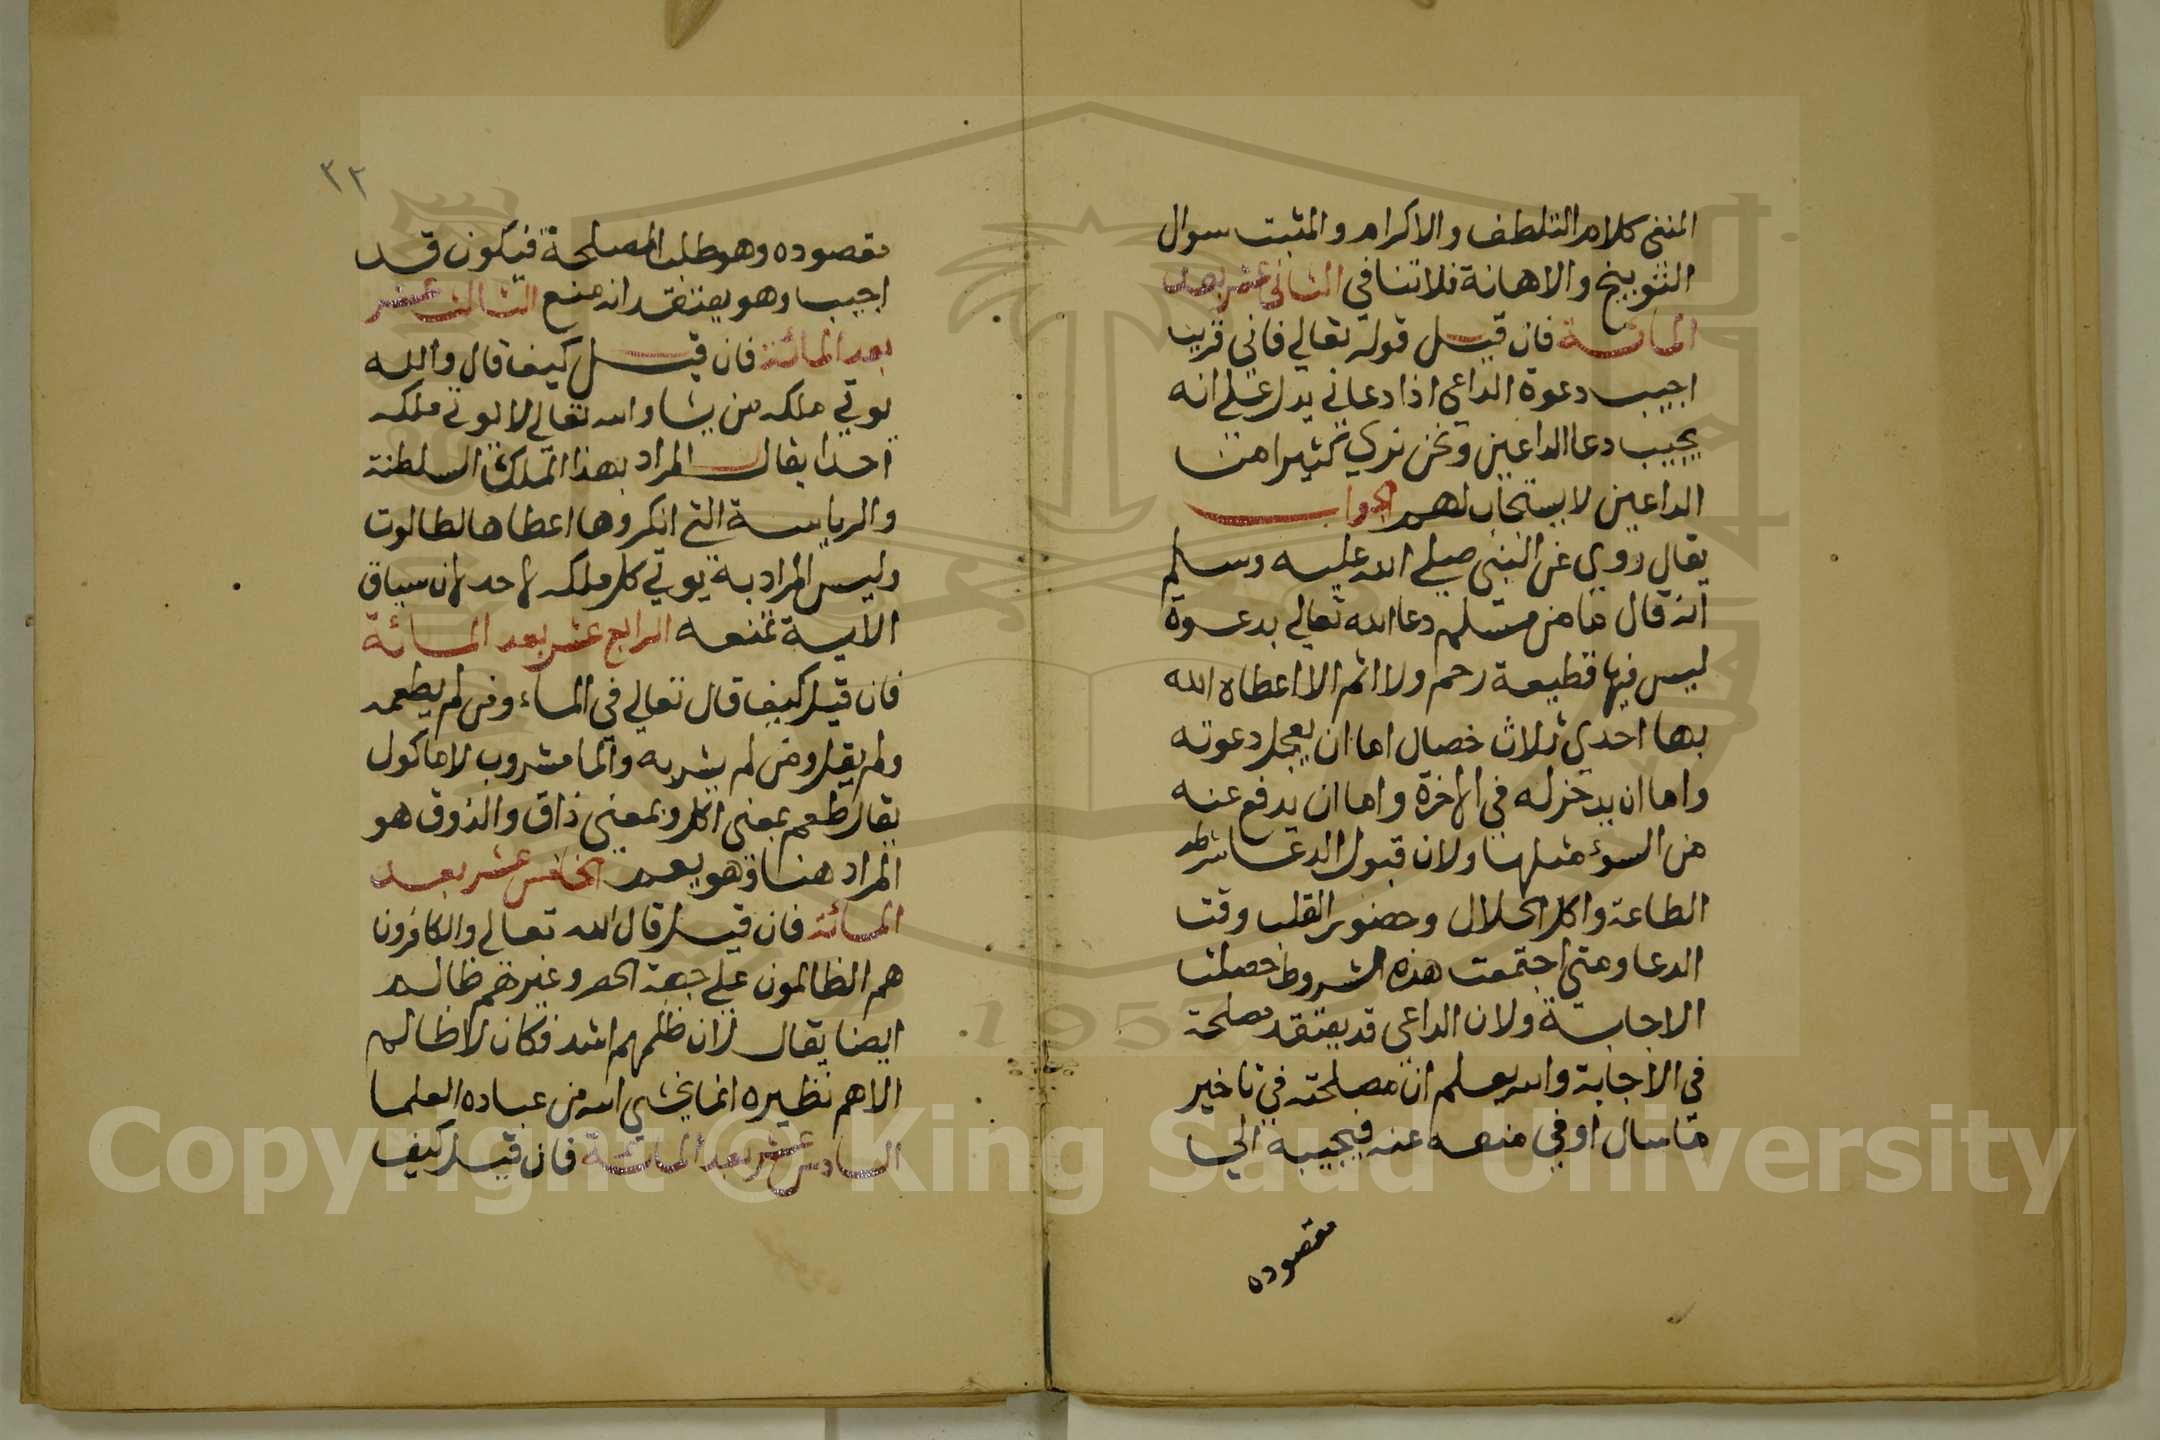 المنفي كلام التلطف والاكرام والمثبت سوال
التوبيخ والاهانة فلا تنافي الثاني عشر بعد
المائة فان قيل قوله تعالي فاني قريب
اجيب دعوة الداعي اذا دعاني يدل علي انه
يجيب دعا الداعين ونحن نري كثيرا من
الداعين لا يستجاب لهم الجواب
يقال روي عن النبي صلي الله عليه وسلم
انه قال ما من مسلم دعا الله تعالي بدعوة
ليس فيها قطيعة رحم ولا اثم الا اعطاه الله
بها احدي ثلاث خصال اما ان يعجل دعوته
واما ان يدخر له في الاخرة واما ان يدفع عنه
من السوء مثلها ولان قبول الدعا شرطه
الطاعة واكل الحلال وحضور القلب وقت
الدعا ومتي اجتمعت هذه الشروط حصلت
الاجابة ولان الداعي قد يعتقد مصلحة
في الاجابة والله يعلم ان مصلحته في تاخير
ما سال او في منعه عنه فيجيبه الي
مقصوده
٣٢
مقصوده وهو طلب المصلحة فيكون قد
اجيب وهو يعتقد انه منع الثالث عشر
بعد المائة فان قيل كيف قال والله
يوتي ملكه من يشا والله تعالي لا يوتي ملكه
احدا يقال المراد بهذا الملك السلطنة
والرياسة التي انكروها اعطاها لطالوت
وليس المراد به يوتي كل ملكه لاحد لان سياق
الاية تمنعه الرابع عشر بعد المائة
فان قيل كيف قال تعالي في الماء ومن لم يطعمه
ولم يقل ومن لم يشربه والما مشروب لا ماكول
يقال طعم بمعني اكل وبمعني ذاق والذوق هو
المراد هنا وهو يعم الخامس عشر بعد
المائة فان قيل قال الله تعالي والكافرون
هم الظالمون علي جهة الحصر وغيرهم ظالم
ايضا يقال لان ظلمهم اشد فكان لا ظالم
الا هم نظيره انما يخشي الله من عباده العلما
السادس عشر بعد المائة فان قيل كيف
Copyright © King Saud University
1957